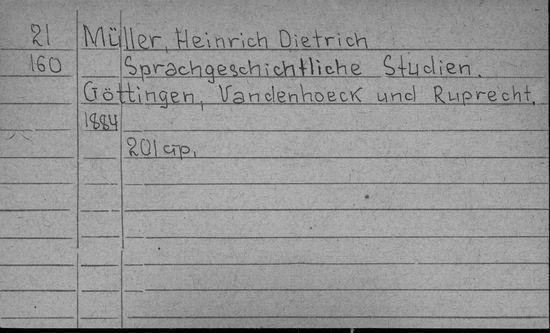 21 Müller, Heinrich Dietrich
160 Sprachgeschichtliche Studien.
Göttingen, Vandenhoeck und Ruprecht,
1884
201 стр.